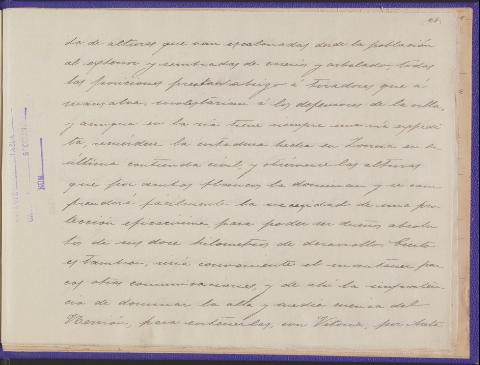 da de alturas que van escalonadas desde la población
al exterior y sembradas de caseríos y arbolado, todas
las posiciones prestan abrigo a tiradores que á
mansalva, molestarian á los defensores de la villa,
y aunque en la ria tiene siempre una via expedi
ta, recuérdese la entrada hecha en la
última contienda civil, y obsérvense las alturas
que por ambos flancos la dominan y se com
prenderá facilmente la necesidad de una pro
tección eficacísima para poder ser dueños absolu
tos de sus doce kilómetros de desarrollo. Cierto
es tambien, seria conveniente el mantener
otras comunicaciones, y de ahí la importan
cia de dominar la alta y media cuenca del
Nervión, para enténderlas, con Vitoria, por